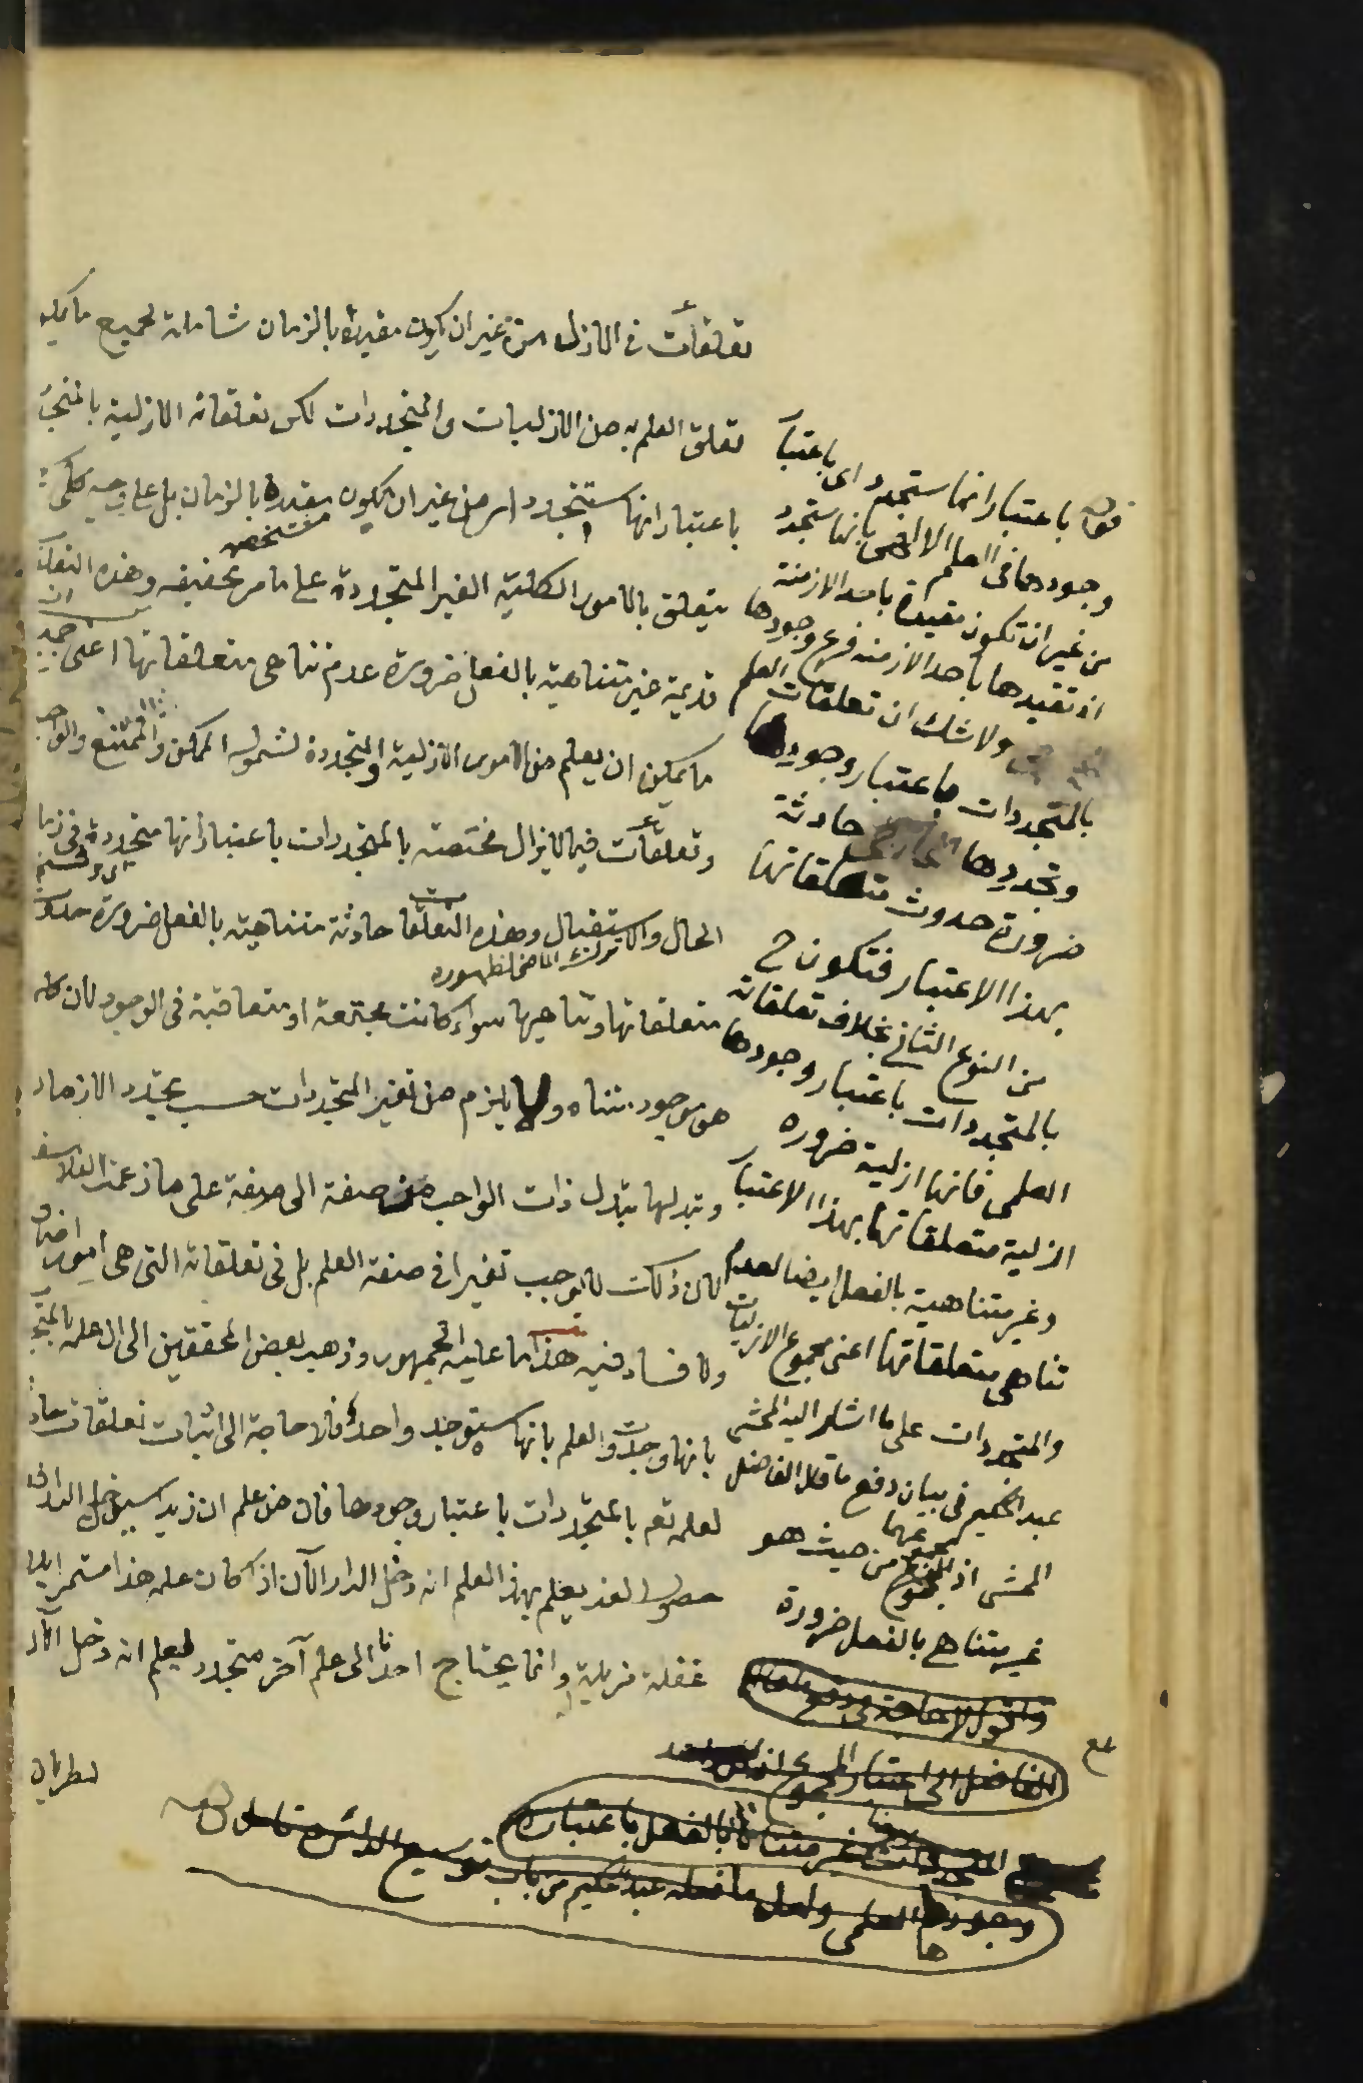 تعلقات في الازل من غير ان يكون مقيدة بالزمان شاملة لجميع ما يمكن
تعلق العلم به من الازليات والمتجددات لكن تعلقاته الازلية بالمتجد
باعتبار انها ستتجدد من غير ان يكون مقيدة بالزمان بل على وجه كلي
متشخص
يتعلق بالامور الكلية الغير المتجددة على ما مر تحقيقه وهذه التعلقا
قديمة غير متناهية بالفعل ضرورة عدم تناهي متعلقاتها اعني جميع
ما يمكن ان يعلم من الامور الازلية والمتجددة لشموله الممكن والممتنع والواجب
وتعلقات فيما لا يزال مختصة بالمتجددات باعتبار انها متجددة في زما
الحال والاستقبال وهذه التعلقا حادثة متناهية بالفعل ضرورة حدوث
ترك الماضي لظهوره
متعلقاتها وتناهيها سواء كانت مجتمعة او متعاقبة في الوجود لان كلما
هو موجود متناه ولا يلزم من تغير المتجددات حسب تجدد الازمان
وتبدلها تبدل ذات الواجب من صفة الى صفة على ما زعمه الفلاسفة
لان ذلك لا يوجب تغيرا في صفة العلم بل في تعلقاته التي هي امور اضا
ولا فساد فيه هذا ما عليه الجمهور وذهب بعض المحققين الى ان علمه بالمتجد
بانها وجدت والعلم بانها ستوجد واحد فلا حاجة الى اثبات تعلقات حاد
لعلمه تع بالمتجددات باعتبار وجودها فان من علم ان زيدا سيدخل الدار
حصول الغد يعلم بهذا العلم انه دخل الدار الآن اذا كان علمه هذا مستمرا بلا
غفلة مزيلة وانما يحتاج احدنا الى علم آخر متجدد ليعلم انه دخل الآن
لطريان
قوله باعتبار انها ستتجدد اي باعتبا
وجودها في العلم الالهي بانها ستتجدد
من غير ان تكون مقيدة باحد الازمنة
اذ تقيدها باحد الازمنة فرع وجودها
ولا شك ان تعلقات العلم
بالمتجددات باعتبار وجودها
وتجددها حادثة
ضرورة حدوث متعلقاتها
بهذا الاعتبار فتكون ح
من النوع الثاني بخلاف تعلقاته
بالمتجددات باعتبار وجودها
العلمي فانها ازلية ضرورة
ازلية متعلقاتها بهذا الاعتبا
وغير متناهية بالفعل ايضا لعدم
تناهي متعلقاتها اعني مجموع الازليات
والمتجددات على ما اشار اليه المحشي
عبد الحكيم في بيان دفع ما قال الفاضل
المحشي اذ المجموع من حيث هو
مجموعهما
غير متناهي بالفعل ضرورة
الفاضل الى اعتبار المجموع
غير متناه بالفعل باعتبار
وجودها العلمي ولعل ما فعله عبد الحكيم من باب توسيع الدائرة
ها